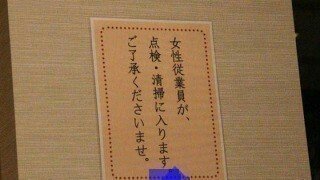 女性従業員が、
点検・清掃に入ります。
ご了承くださいませ。